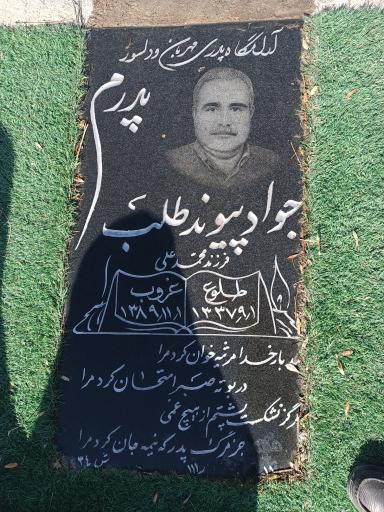 آرامگاه پدری مهربان و دلسوز
پدرم
جواد پیوند طلب
فرزند محمد علی
طلوع
۱۳۳۷/۹/۱
غروب
۱۳۸۹/۱۱/۱
بار خدا مرثیه خوان کرد مرا
در بوته صبر امتحان کرد مرا
هرگز نشکست پشتم از هیچ غمی
جز مرگ پدر که نیمه جان کرد مرا